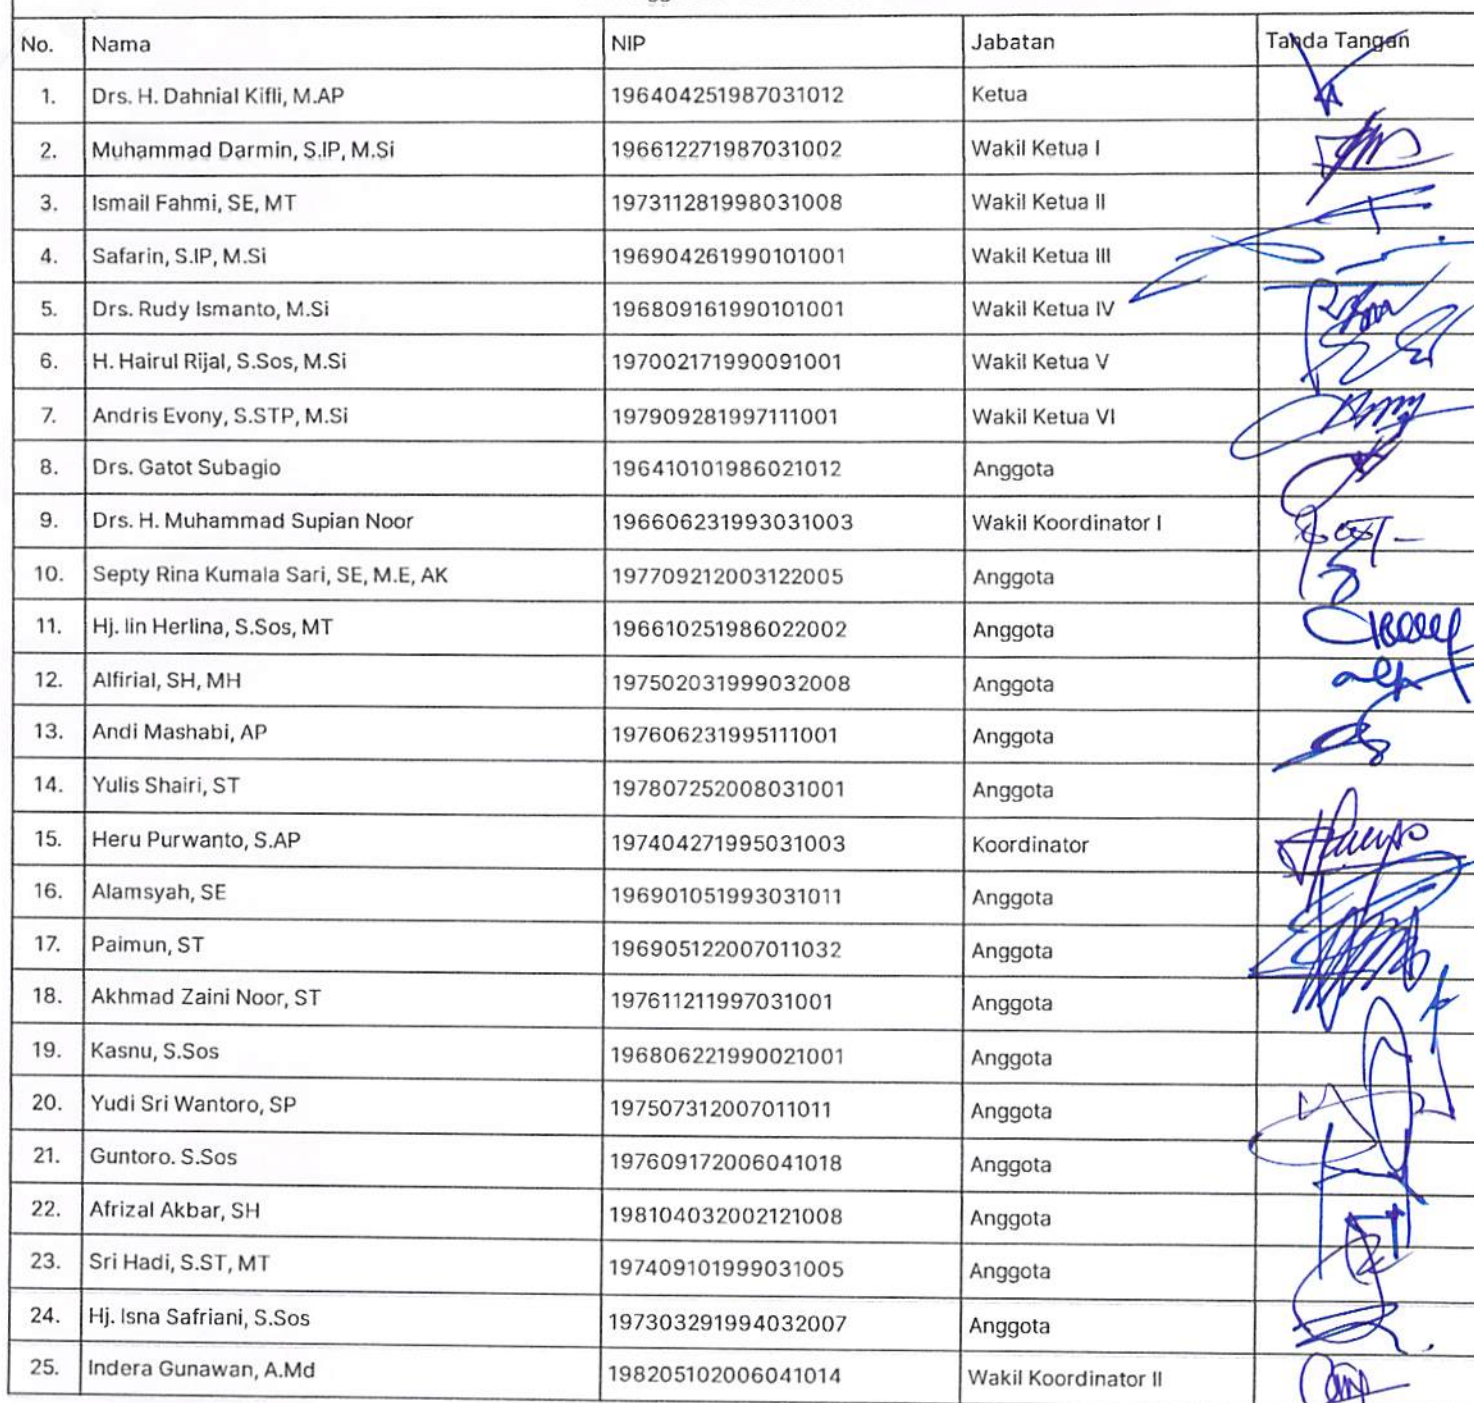 No. Nama NIP Jabatan Tanda Tangan
1. Drs. H. Dahnial Kifli, M.AP 196404251987031012 Ketua
2. Muhammad Darmin, S.IP, M.Si 196612271987031002 Wakil Ketua I
3. Ismail Fahmi, SE, MT 197311281998031008 Wakil Ketua II
4. Safarin, S.IP, M.Si 196904261990101001 Wakil Ketua III
5. Drs. Rudy Ismanto, M.Si 196809161990101001 Wakil Ketua IV
6. H. Hairul Rijal, S.Sos, M.Si 197002171990091001 Wakil Ketua V
7. Andris Evony, S.STP, M.Si 197909281997111001 Wakil Ketua VI
8. Drs. Gatot Subagio 196410101986021012 Anggota
9. Drs. H. Muhammad Supian Noor 196606231993031003 Wakil Koordinator I
10. Septy Rina Kumala Sari, SE, M.E, AK 197709212003122005 Anggota
11. Hj. Iin Herlina, S.Sos, MT 196610251986022002 Anggota
12. Alfirial, SH, MH 197502031999032008 Anggota
13. Andi Mashabi, AP 197606231995111001 Anggota
14. Yulis Shairi, ST 197807252008031001 Anggota
15. Heru Purwanto, S.AP 197404271995031003 Koordinator
16. Alamsyah, SE 196901051993031011 Anggota
17. Paimun, ST 196905122007011032 Anggota
18. Akhmad Zaini Noor, ST 197611211997031001 Anggota
19. Kasnu, S.Sos 196806221990021001 Anggota
20. Yudi Sri Wantoro, SP 197507312007011011 Anggota
21. Guntoro. S.Sos 197609172006041018 Anggota
22. Afrizal Akbar, SH 198104032002121008 Anggota
23. Sri Hadi, S.ST, MT 197409101999031005 Anggota
24. Hj. Isna Safriani, S.Sos 197303291994032007 Anggota
25. Indera Gunawan, A.Md 198205102006041014 Wakil Koordinator II